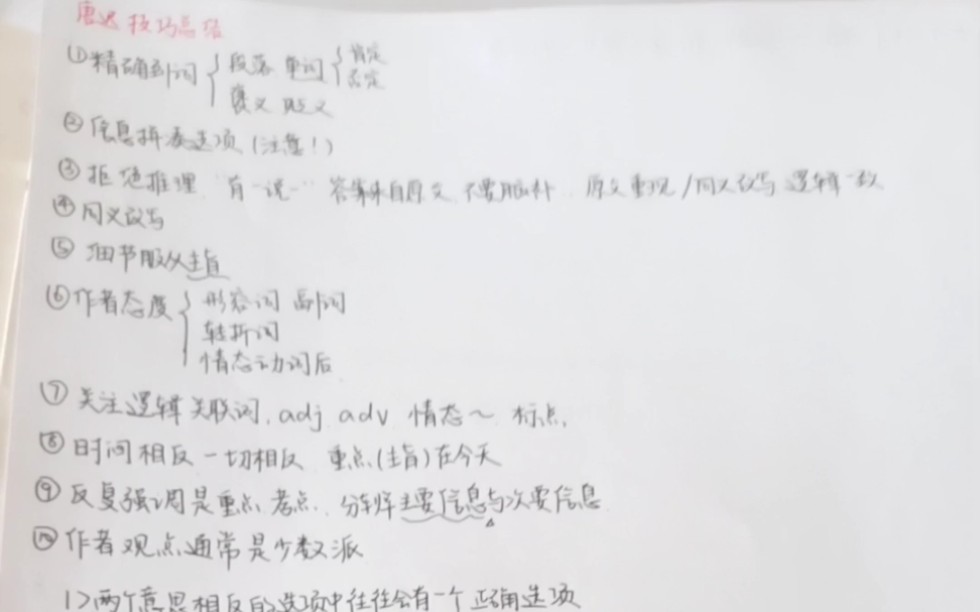 唐迟技巧总结
①精确到词 { 段落 单词 { 肯定
否定
褒义 贬义
②信息拼凑选项(注意!)
③拒绝推理 "有一说一" 答案来自原文 不要脑补 原文重现/同义改写 逻辑一致
④同义改写
⑤细节服从主旨
⑥作者态度 { 形容词 副词
转折词
情态动词后
⑦关注逻辑关联词, adj adv 情态~ 标点,
⑧时间相反一切相反 重点(主旨)在今天
⑨反复强调是重点、考点. 分辨主要信息与次要信息
⑩作者观点通常是少数派
1>两个意思相反的选项中往往会有一个正确选项